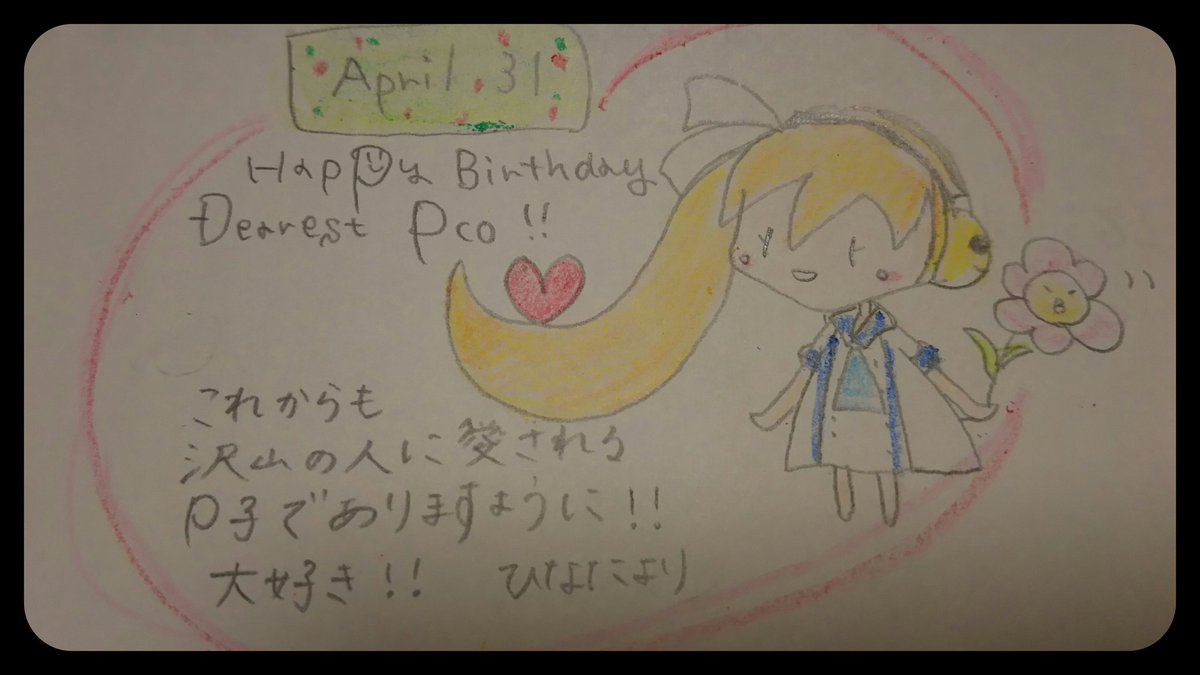 April.31
Happy Birthday
Dearest Pco!!
これからも
沢山の人に愛される
P子でありますように!!
大好き!! ひなたより